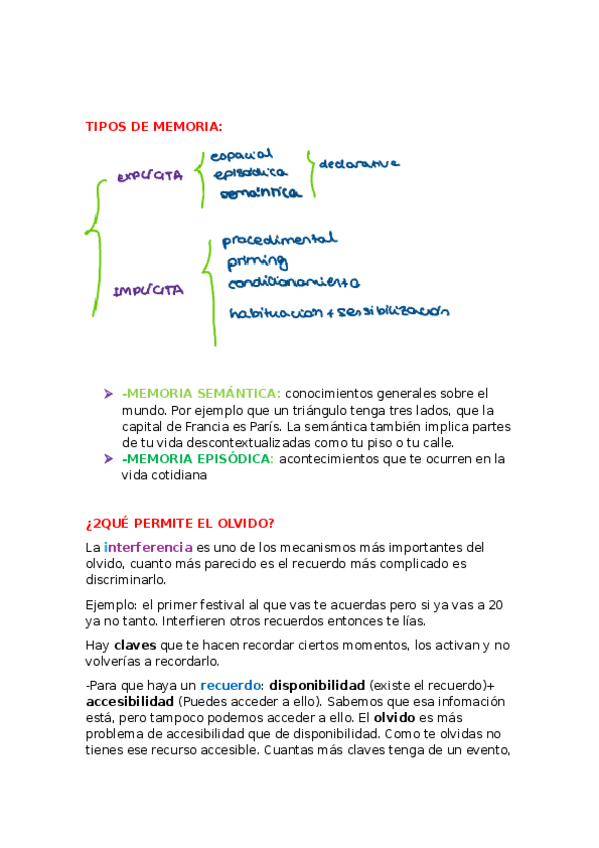 TIPOS DE MEMORIA:
espacial
EXPLÍCITA episódica declarative
semántica
procedimental
priming
IMPLÍCITA condicionamiento
habituación + sensibilización
➢ -MEMORIA SEMÁNTICA: conocimientos generales sobre el
mundo. Por ejemplo que un triángulo tenga tres lados, que la
capital de Francia es París. La semántica también implica partes
de tu vida descontextualizadas como tu piso o tu calle.
➢ -MEMORIA EPISÓDICA: acontecimientos que te ocurren en la
vida cotidiana
¿2QUÉ PERMITE EL OLVIDO?
La interferencia es uno de los mecanismos más importantes del
olvido, cuanto más parecido es el recuerdo más complicado es
discriminarlo.
Ejemplo: el primer festival al que vas te acuerdas pero si ya vas a 20
ya no tanto. Interfieren otros recuerdos entonces te lías.
Hay claves que te hacen recordar ciertos momentos, los activan y no
volverías a recordarlo.
-Para que haya un recuerdo: disponibilidad (existe el recuerdo)+
accesibilidad (Puedes acceder a ello). Sabemos que esa infomación
está, pero tampoco podemos acceder a ello. El olvido es más
problema de accesibilidad que de disponibilidad. Como te olvidas no
tienes ese recurso accesible. Cuantas más claves tenga de un evento,